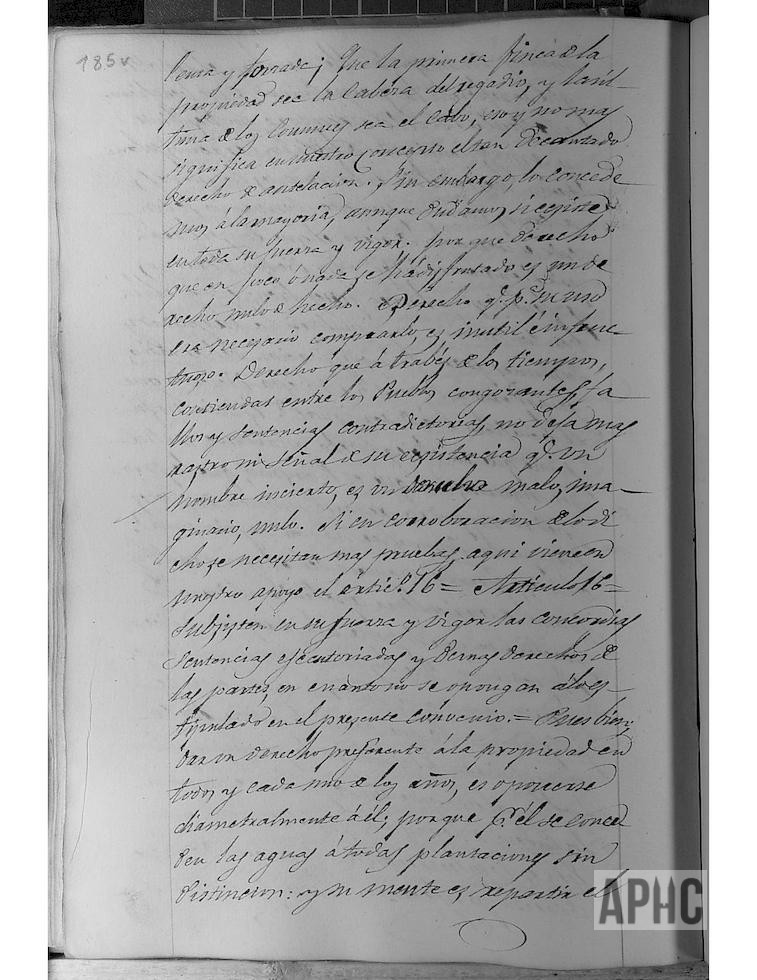 185v
y forrage; Que la primera finca de la
propiedad sea la cabera del regadio, y la úl-
tima de los comunes sea el cabo, eso y no mas
significa en nuestro concepto el tan decantado
derecho de antelacion. Sin embargo, lo concede
mos á la mayoria, aunque dudamos si ecsiste
en toda su fuerza y vigor. porque derecho
que en poco ó nada se há disfrutado es un de
recho nulo de hecho. Derecho q.e p.a su uso
era necesario comprarlo, es inutil é infruc-
tuoso. Derecho que á trabés de los tiempos,
contiendas entre los Pueblos congozantes, fa
llos y sentencias contradictorias, no deja mas
rastro ni señal de su ecsistencia q.e un
nombre incierto, es un malo, ima-
ginario, nulo. Si en corroboracion de lo di
cho se necesitan mas pruebas, aqui viene en
nuestro apoyo el artic.o 16 = Articulo 16 =
Subsisten en su fuerza y vigor las concordias
sentencias ejecutoriadas y demas derechos de
las partes, en cuanto no se opongan á lo es-
tipulado en el presente convenio. = Pues bien;
dar un derecho preferente á la propiedad en
todos y cada uno de los años, es oponerse
diametralmente á él; porque p.r él se conce
den las aguas á todas plantaciones sin
distincion: y su mente es repartir el
APHC